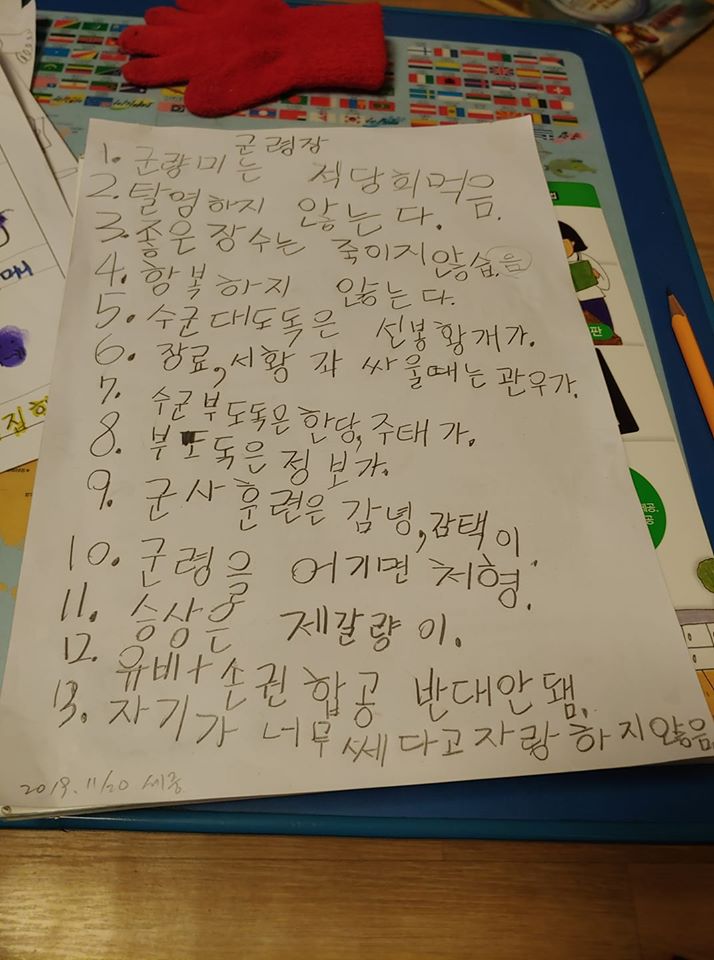 군령장
1. 군량미는 적당희먹음
2. 탈영하지 않는다.
3. 좋은 장수는 죽이지않습음
4. 항복하지 않는다.
5. 수군대도독은 선봉황개가.
6. 장료,서황 과 싸울때는관우가.
7. 수군부도독은한당,주태가.
8. 부도독은정보가.
9. 군사훈련은감녕,감택이.
10. 군령을 어기면처형.
11. 승상은 제갈량이.
12. 유비+손권합공 반대안됌.
13. 자기가 너무쎄다고자랑하지않음
2019. 11/20 세종